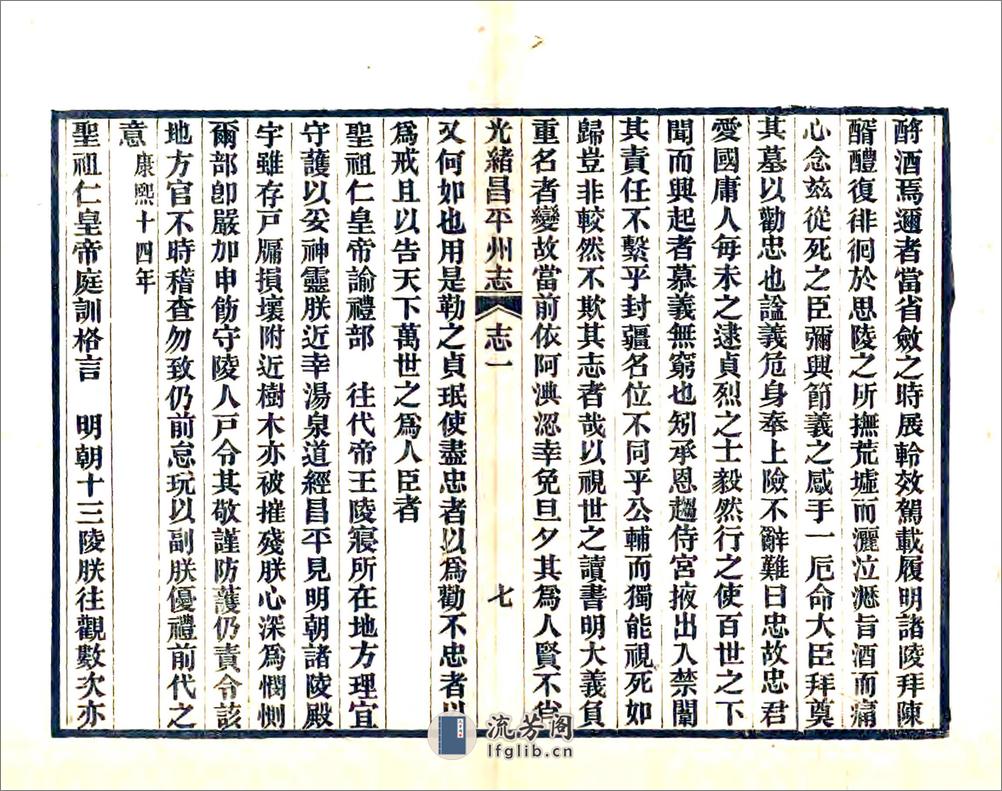 酹酒焉邇者當省斂之時展軨效駕載履明諸陵拜陳
醑醴復徘徊於思陵之所撫荒墟而灑泣瀝旨酒而痛
心念茲從死之臣彌興節義之感手一卮命大臣拜奠
其墓以勸忠也諡義危身奉上險不辭難曰忠故忠君
愛國庸人每未之逮貞烈之士毅然行之使百世之下
聞而興起者慕義無窮也矧承恩趨侍宮掖出入禁闥
其責任不繫乎封疆名位不同乎公輔而獨能視死如
歸豈非較然不欺其志者哉以視世之讀書明大義負
重名者變故當前依阿淟涊幸免旦夕其為人賢不省
光緒昌平州志 志一 七
又何如也用是勒之貞珉使盡忠者以為勸不忠者以
為戒且以告天下萬世之為人臣者
聖祖仁皇帝諭禮部 往代帝王陵寢所在地方理宜
守護以妥神靈朕近幸湯泉道經昌平見明朝諸陵殿
宇雖存戸牖損壞附近樹木亦被摧殘朕心深為憫惻
爾部卽嚴加申飭守陵人戸令其敬謹防護仍責令該
地方官不時稽查勿致仍前怠玩以副朕優禮前代之
意 康熙十四年
聖祖仁皇帝庭訓格言 明朝十三陵朕往觀數次亦
流芳阁
lfglib.cn